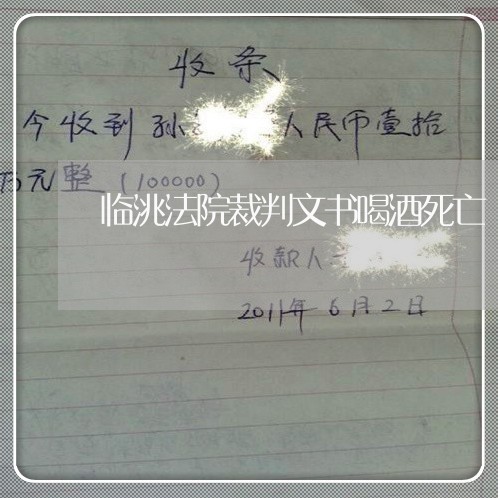 收条
今收到孙 人民币壹拾
万元整(100000)
临洮法院裁判文书喝酒死亡
收款人
2011年6月2日